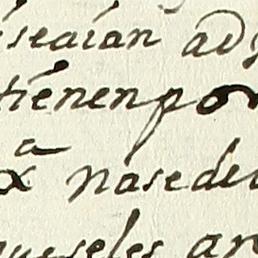 seaían ad
tiénen por
xᵃ nasede
queseles an